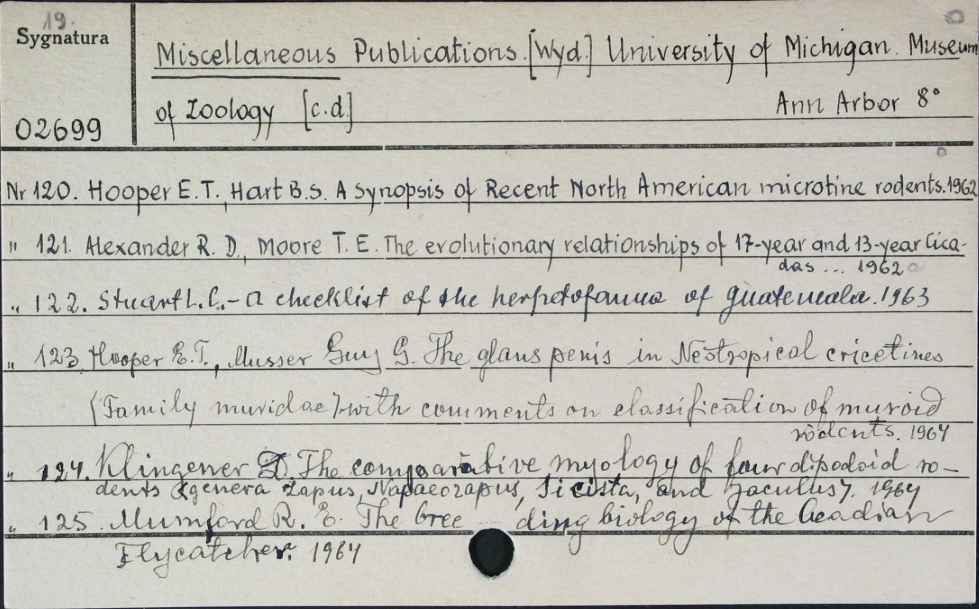 19.
Sygnatura
02699
Miscellaneous Publications. [Wyd.] University of Michigan. Museum
of Zoology [c.d.]
Ann Arbor 8°
Nr 120. Hooper E.T., Hart B.S. A synopsis of Recent North American microtine rodents. 1962
" 121. Alexander R. D., Moore T. E. The evolutionary relationships of 17-year and 13-year Cica-
das ... 1962
" 122. Stuart L.C. - A checklist of the herpetofauna of Guatemala. 1963
" 123. Hooper E.T., Musser Guy G. The glans penis in Neotropical cricetines
(Family muridae) with comments on classification of muroid
rodents. 1964
" 124. Klingener D. The comparative myology of four dipodoid ro-
dents (genera Zapus, Napaeozapus, Sicista, and Jaculus). 1964
" 125. Mumford R. E. The bree ding biology of the Acadian
Flycatcher. 1964